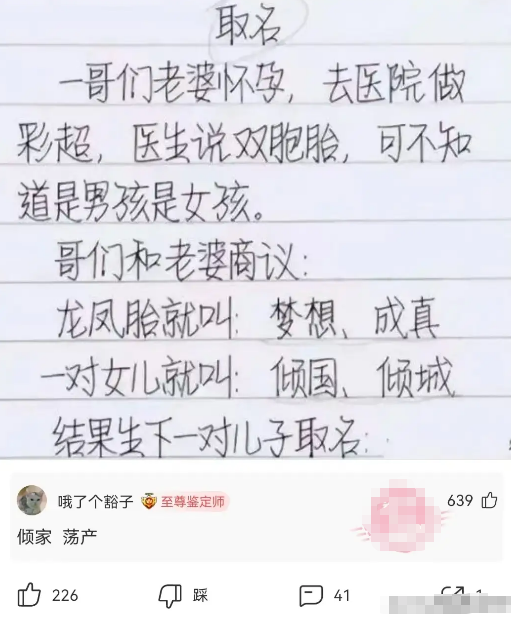 取名
一哥们老婆怀孕，去医院做
彩超，医生说双胞胎，可不知
道是男孩是女孩。
哥们和老婆商议：
龙凤胎就叫：梦想、成真
一对女儿就叫：倾国、倾城
结果生下一对儿子取名：
哦了个豁子 至尊鉴定师 639
倾家 荡产
226 踩 41 1